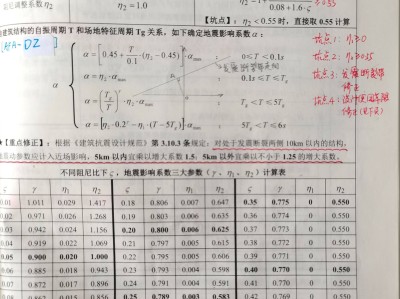 尼调整系数 η2
η2=1.0
0.08+1.6ς
【坑点】: η2<0.55 时，直接取 0.55 计算
建筑结构的自振周期 T 和场地特征周期 Tg 关系，如下确定地震影响系数 α：
α=[0.45+T/0.1·(η2-0.45)]·αmax ： 0≤T<0.1s
α=η2·αmax ： 0.1s≤T≤Tg
α
α=(Tg/T)^γ·η2·αmax ： Tg<T≤5Tg
α=[η2·0.2^γ-η1(T-5Tg)]·αmax 5Tg<T≤6s
坑点1：η1≥0
坑点2：η2≥0.55
坑点3：发震断裂带
修正
★【重点修正】：根据《建筑抗震设计规范》第 3.10.3 条规定：对处于发震断裂两侧 10km 以内的结构，
地震动参数应计入近场影响，5km 以内宜乘以增大系数 1.5；5km 以外宜乘以不小于 1.25 的增大系数。
不同阻尼比下ς，地震影响系数三大参数（γ、η1、η2）计算表
ς γ η1 η2 ς γ η1 η2 ς γ η1 η2
0.01 1.011 0.029 1.417 0.18 0.806 0.007 0.647 0.35 0.775 0 0.550
0.02 0.971 0.026 1.268 0.19 0.803 0.006 0.635 0.36 0.774 0 0.550
0.03 0.942 0.024 1.156 0.20 0.800 0.006 0.625 0.37 0.773 0 0.550
0.04 0.919 0.022 1.069 0.21 0.797 0.005 0.615 0.38 0.772 0 0.550
0.05 0.900 0.020 1.000 0.22 0.795 0.005 0.606 0.39 0.771 0 0.550
0.06 0.885 0.018 0.943 0.23 0.793 0.004 0.598 0.40 0.770 0 0.550
0.872 0.017 0.896 0.24 0.791 0.004 0.591 0.41 0.770 0 0.550
0.862 0.015 0.856 0.25 0.789 0.003 0.583 0.42 0.769 0 0.550